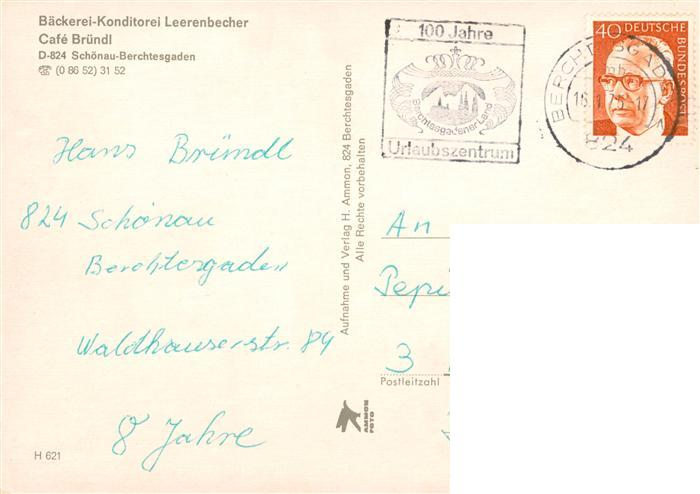 Bäckerei-Konditorei Leerenbecher
Café Bründl
D-824 Schönau-Berchtesgaden
☎ (0 86 52) 31 52
100 Jahre
Berchtesgadener Land
Urlaubszentrum
BERCHTESGAD
824
40 DEUTSCHE
BUNDESPOST
Hans Bründl
824 Schönau
Berchtesgaden
Waldhauserstr. 84
8 Jahre
H 621
Aufnahme und Verlag H. Ammon, 824 Berchtesgaden
Alle Rechte vorbehalten
An
Pepi
3
Postleitzahl
AMMON
FOTO